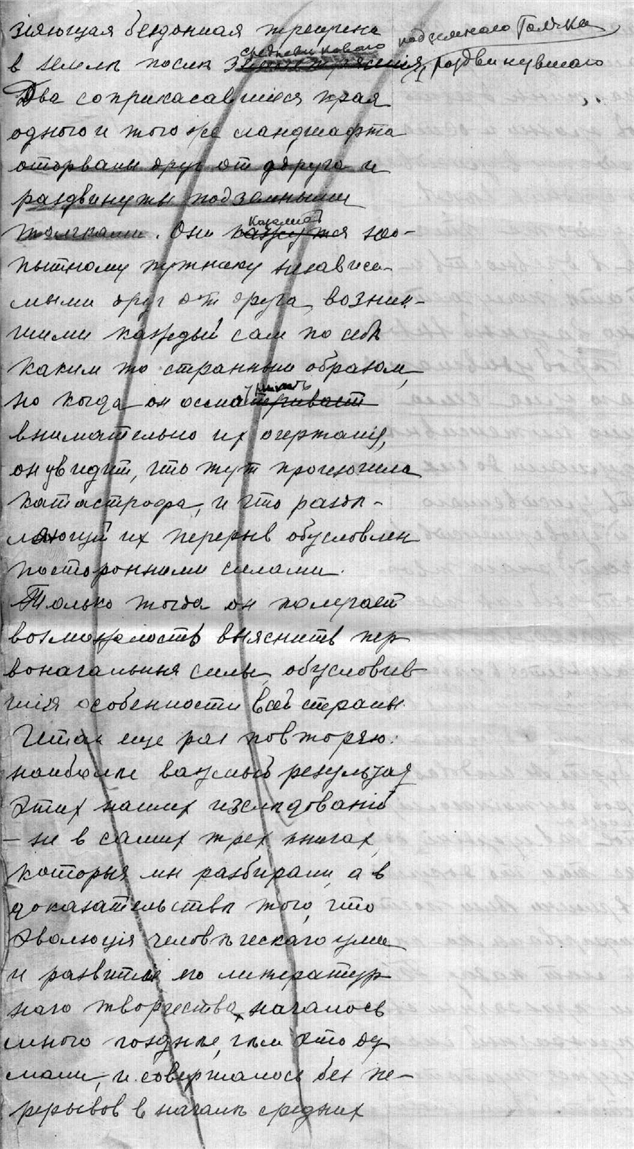 зіяющая бездонная трещина
подземнаго толчка
средневѣковаго
в землѣ послѣ раздвинувшаго
Два соприкасавшихся края
одного и того же ландшафта
оторваны друг от друга и
раздвинуты подземными
толчками. Они кажутся лю-
пытному путнику независи-
мыми друг от друга, возник-
шими каждый сам по себѣ
каким то странным образом,
но когда он осматривает
внимательно их очертанія,
он увидит, что тут произошла
катастрофа, и что разд-
ляющій их перерыв обусловлен
посторонними силами.
Только тогда он получает
возможность выяснить пер
воначальныя силы, обусловив
шія особенности всей страны.
Итак еще раз повторяю:
наиболѣе важный результат
этих наших изслѣдованій
– не в самих трех книгах,
которыя мы разбирали, а в
доказательствѣ того, что
эволюція человѣческаго ума
и развитіе его литератур
наго творчества началось
много позднѣе, чѣм это ду
мали, и совершалось без пе-
рерывов в началѣ средних